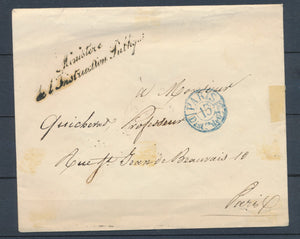 Ministère
de l'Instruction Publique
à Monsieur
Quicherat, Professeur
Rue St Jean de Beauvais 10
Paris
PARIS
15